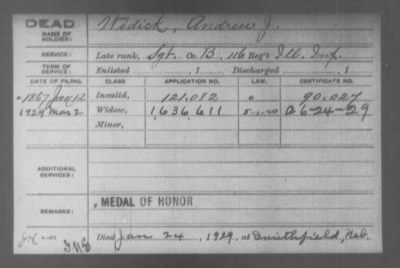 DEAD
NAME OF SOLDIER: Widick, Andrew J.
SERVICE: Late rank, Sgt. Co. B, 116 Reg't Ill. Inf.
TERM OF SERVICE: Enlisted , 1 Discharged , 1
DATE OF FILING. CLASS APPLICATION NO. LAW. CERTIFICATE NO.
1867 Jan 12 Invalid, 121.082 90.027
1929 Mar 2 Widow, 1,636,611 5-1-20 A 6-24-29
Minor,
ADDITIONAL SERVICES:
REMARKS:
, MEDAL OF HONOR
Died Jan 24, 1929, at Smithfield, Neb.